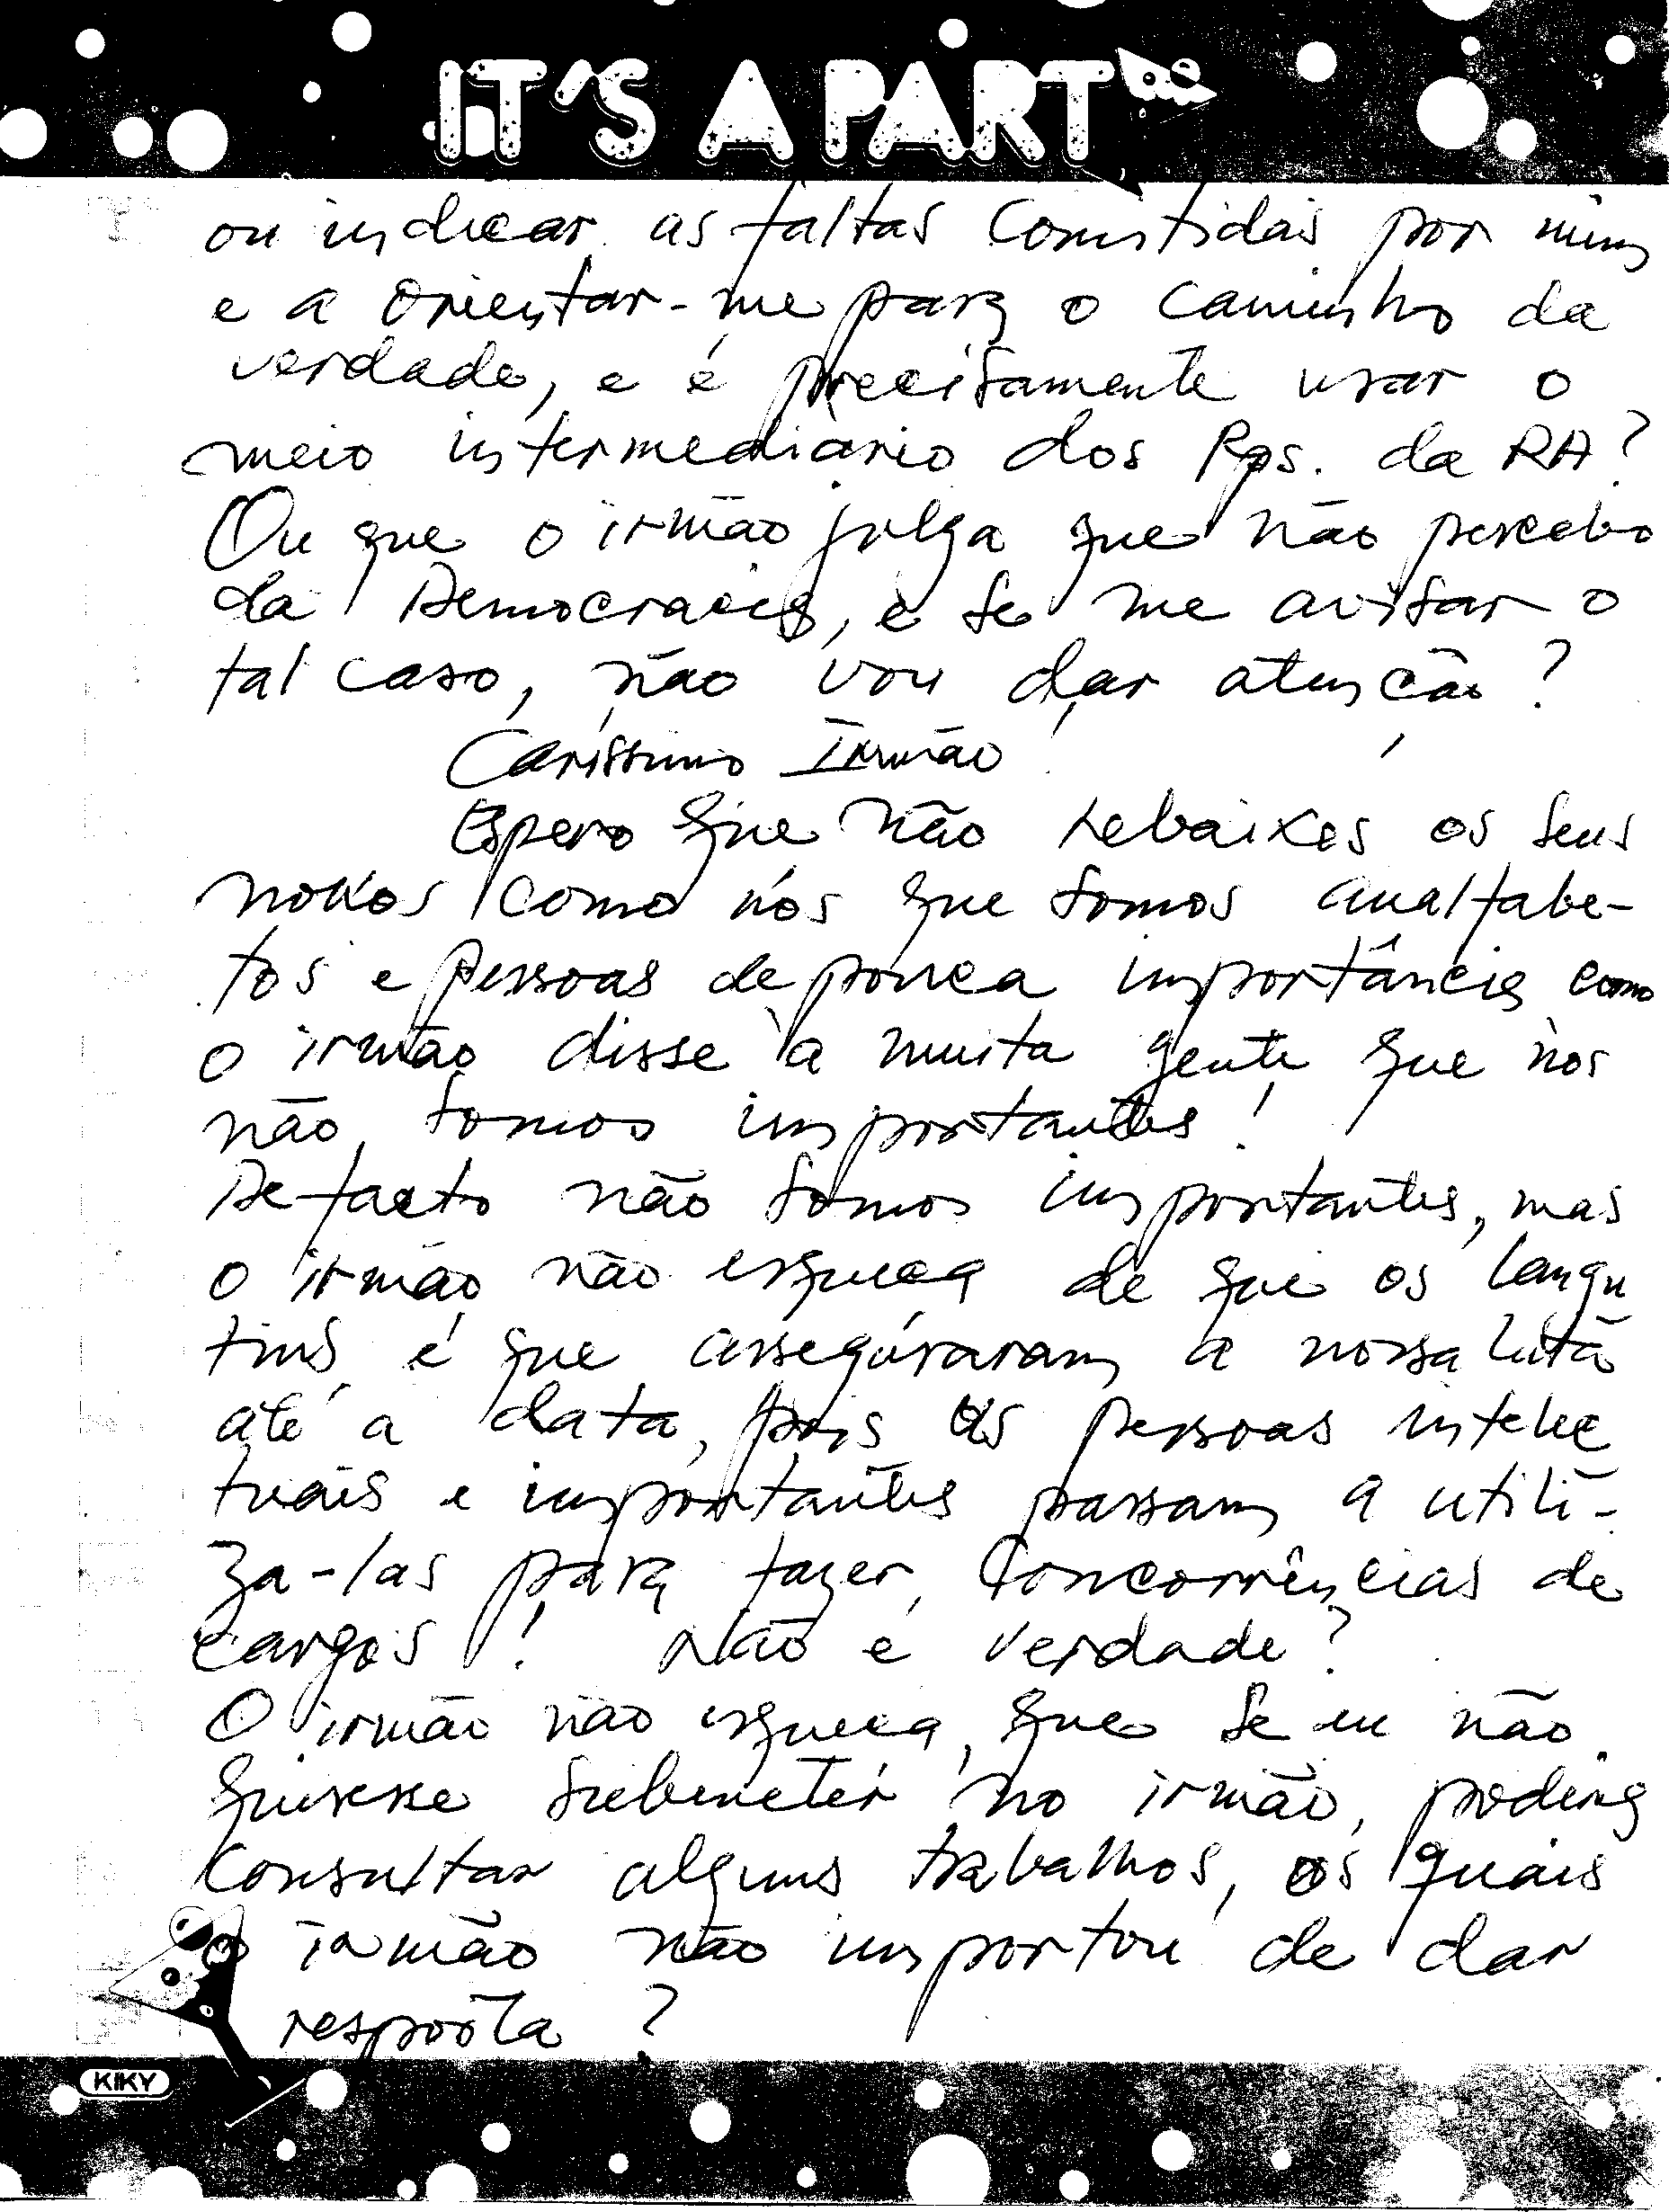 IT'S A PART
ou indicar as faltas cometidas por mim
e a orientar-me para o caminho da
verdade, e é precisamente usar o
meio intermediário dos Rps. da RA?
Ou que o irmão julga que não percebo
da Democracia, e se me avisar o
tal caso, não vou dar atenção?
Caríssimo Irmão!
Espero que não rebaixes os seus
como nós que somos analfabe-
tos e pessoas de pouca importância como
o irmão disse à muita gente que nòs
não somos importantes!
De facto não somos importantes, mas
o irmão não esqueça de que os langu
tins é que asseguraram a nossa luta
até a data, pois as pessoas intelec
tuais e importantes passam a utili-
za-las para fazer, Concorrências de
cargos! Não é verdade?
O irmão não esqueça, que se eu não
quisesse submeter no irmão, podera
consultar alguns trabalhos, os quais
o irmão não importou de dar
resposta?
KIKY